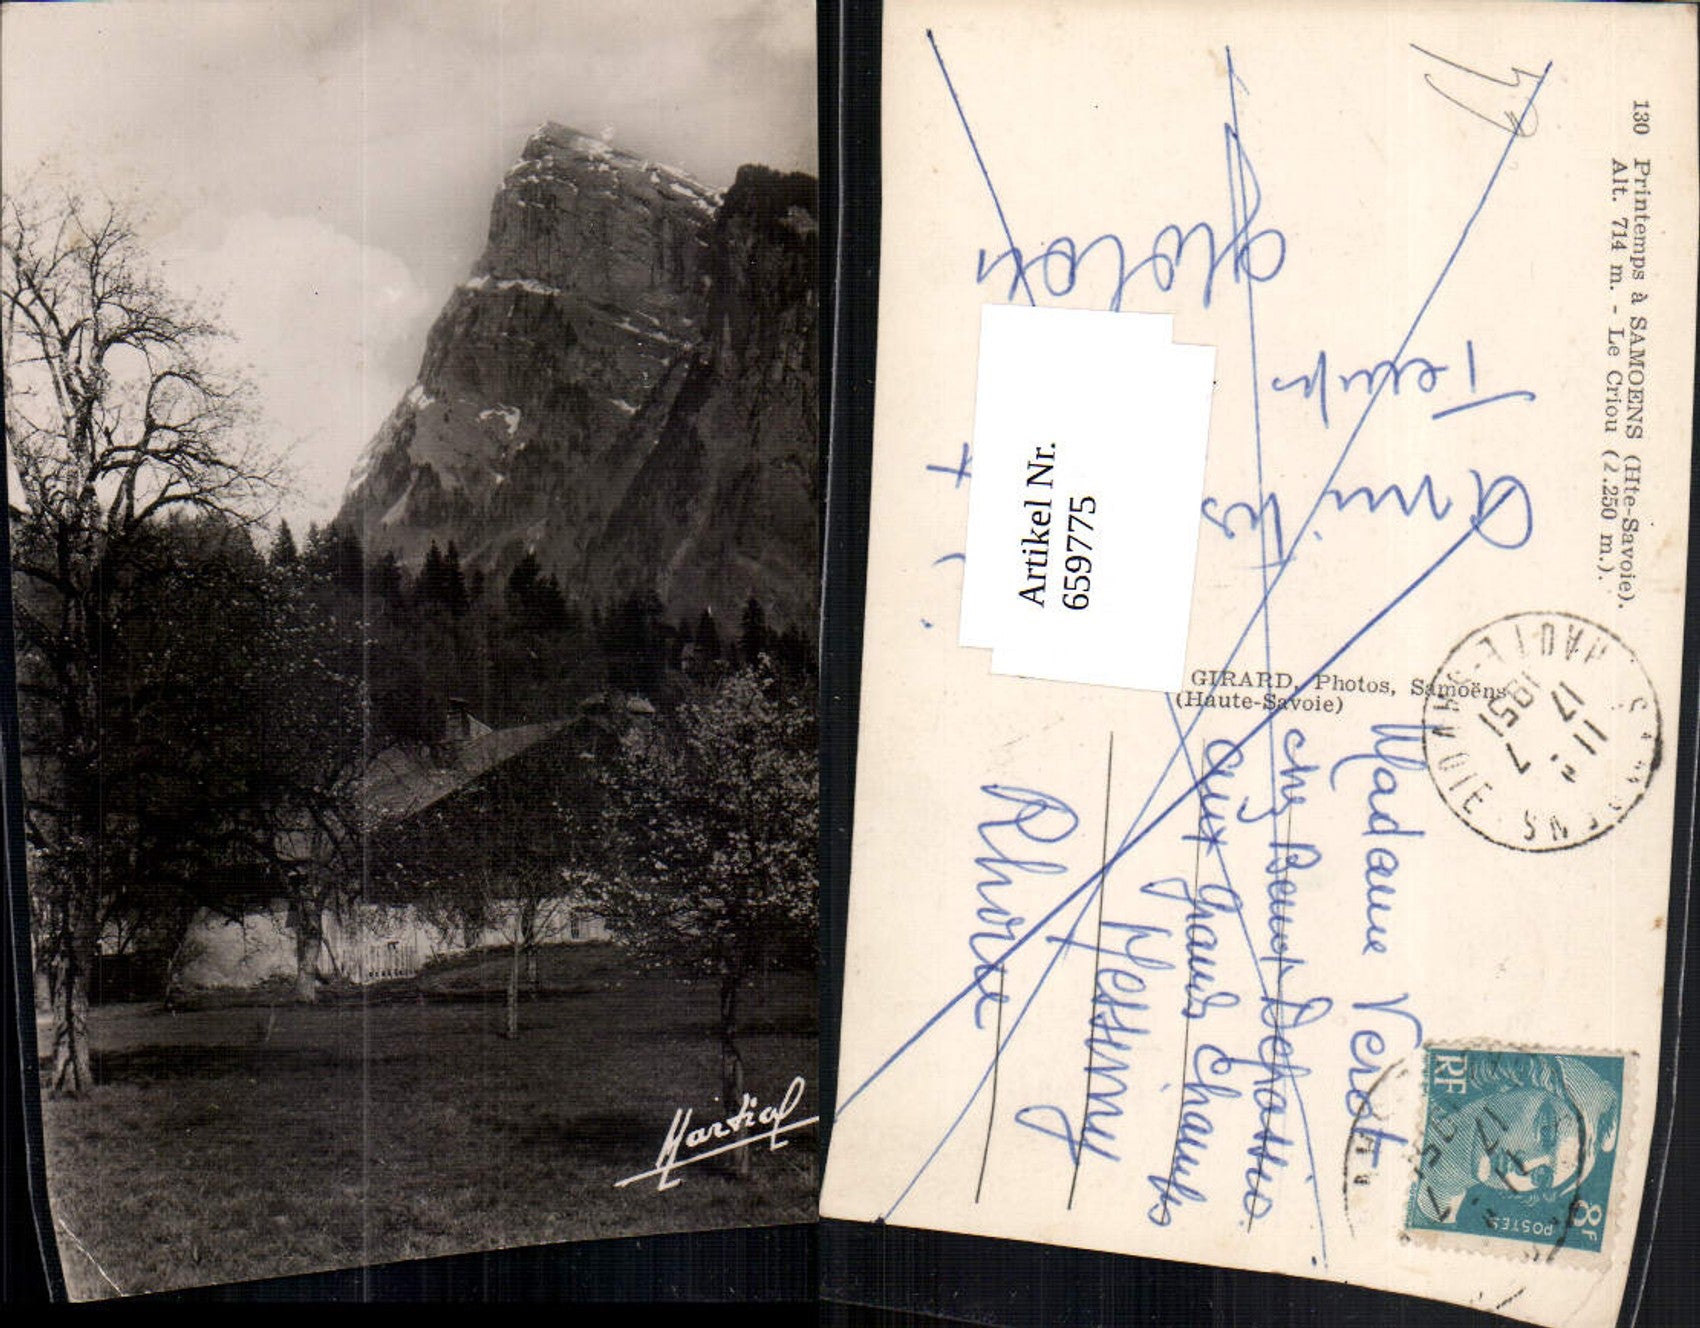 Martial
130 Printemps à SAMOENS (Hte-Savoie).
Alt. 714 m. - Le Criou (2.250 m.).
GIRARD, Photos, Samoëns
(Haute-Savoie)
Artikel Nr.
659775
Amitiés
Madame Verot
chez
aux grands Champs
Messimy
Rhône
HAUTE-SAVOIE
17
11 - 7
1951
RF
POSTES
8F